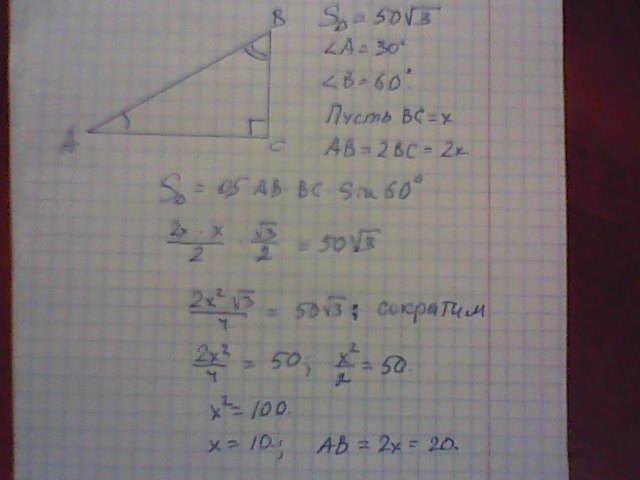 B
S△ = 50√3
∠A = 30°
∠B = 60°
Пусть BC = x
A
C
AB = 2BC = 2x
S△ = 0,5 AB · BC · Sin 60°
2x · x / 2 · √3 / 2 = 50√3
2x²√3 / 4 = 50√3; сократим
2x² / 4 = 50; x² / 2 = 50.
x² = 100.
x = 10; AB = 2x = 20.